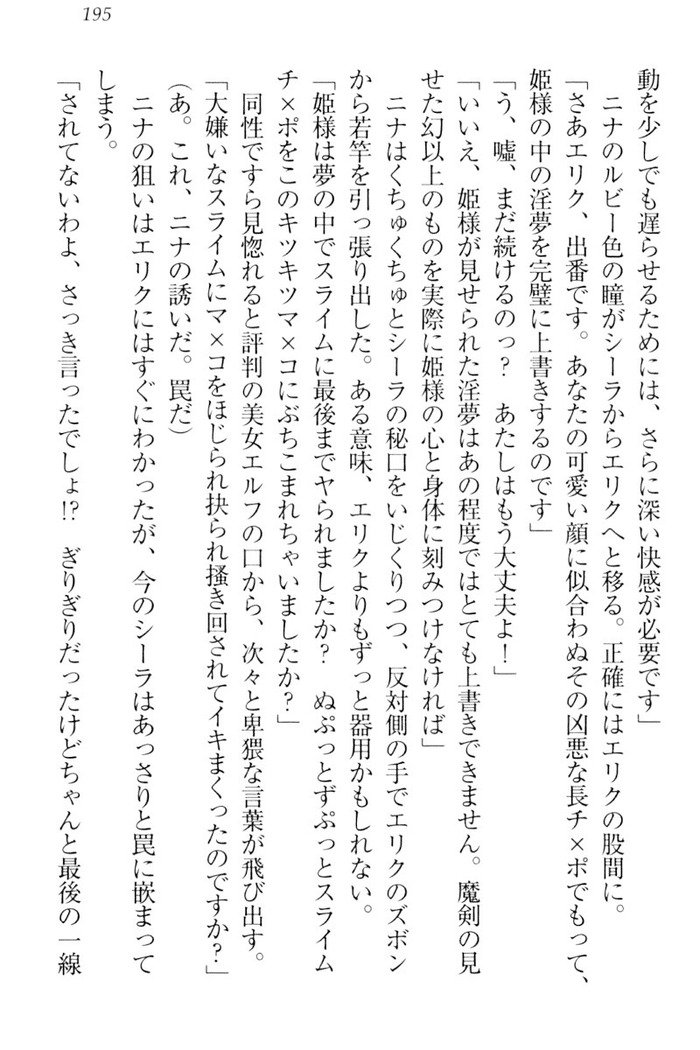 195
動を少しでも遅らせるためには、さらに深い快感が必要です」
　ニナのルビー色の瞳がシーラからエリクへと移る。正確にはエリクの股間に。
「さあエリク、出番です。あなたの可愛い顔に似合わぬその凶悪な長チ×ポでもって、
姫様の中の淫夢を完璧に上書きするのです」
「う、嘘、まだ続けるのっ？　あたしはもう大丈夫よ！」
「いいえ、姫様が見せられた淫夢はあの程度ではとても上書きできません。魔剣の見
せた幻以上のものを実際に姫様の心と身体に刻みつけなければ」
　ニナはくちゅくちゅとシーラの秘口をいじくりつつ、反対側の手でエリクのズボン
から若竿を引っ張り出した。ある意味、エリクよりもずっと器用かもしれない。
「姫様は夢の中でスライムに最後までヤられましたか？　ぬぷっとずぷっとスライム
チ×ポをこのキツキツマ×コにぶちこまれちゃいましたか？」
　同性ですら見惚れると評判の美女エルフの口から、次々と卑猥な言葉が飛び出す。
「大嫌いなスライムにマ×コをほじられ抉られ掻き回されてイキまくったのですか？」
(あ。これ、ニナの誘いだ。罠だ)
　ニナの狙いはエリクにはすぐにわかったが、今のシーラはあっさりと罠に嵌まって
しまう。
「されてないわよ、さっき言ったでしょ!?　ぎりぎりだったけどちゃんと最後の一線